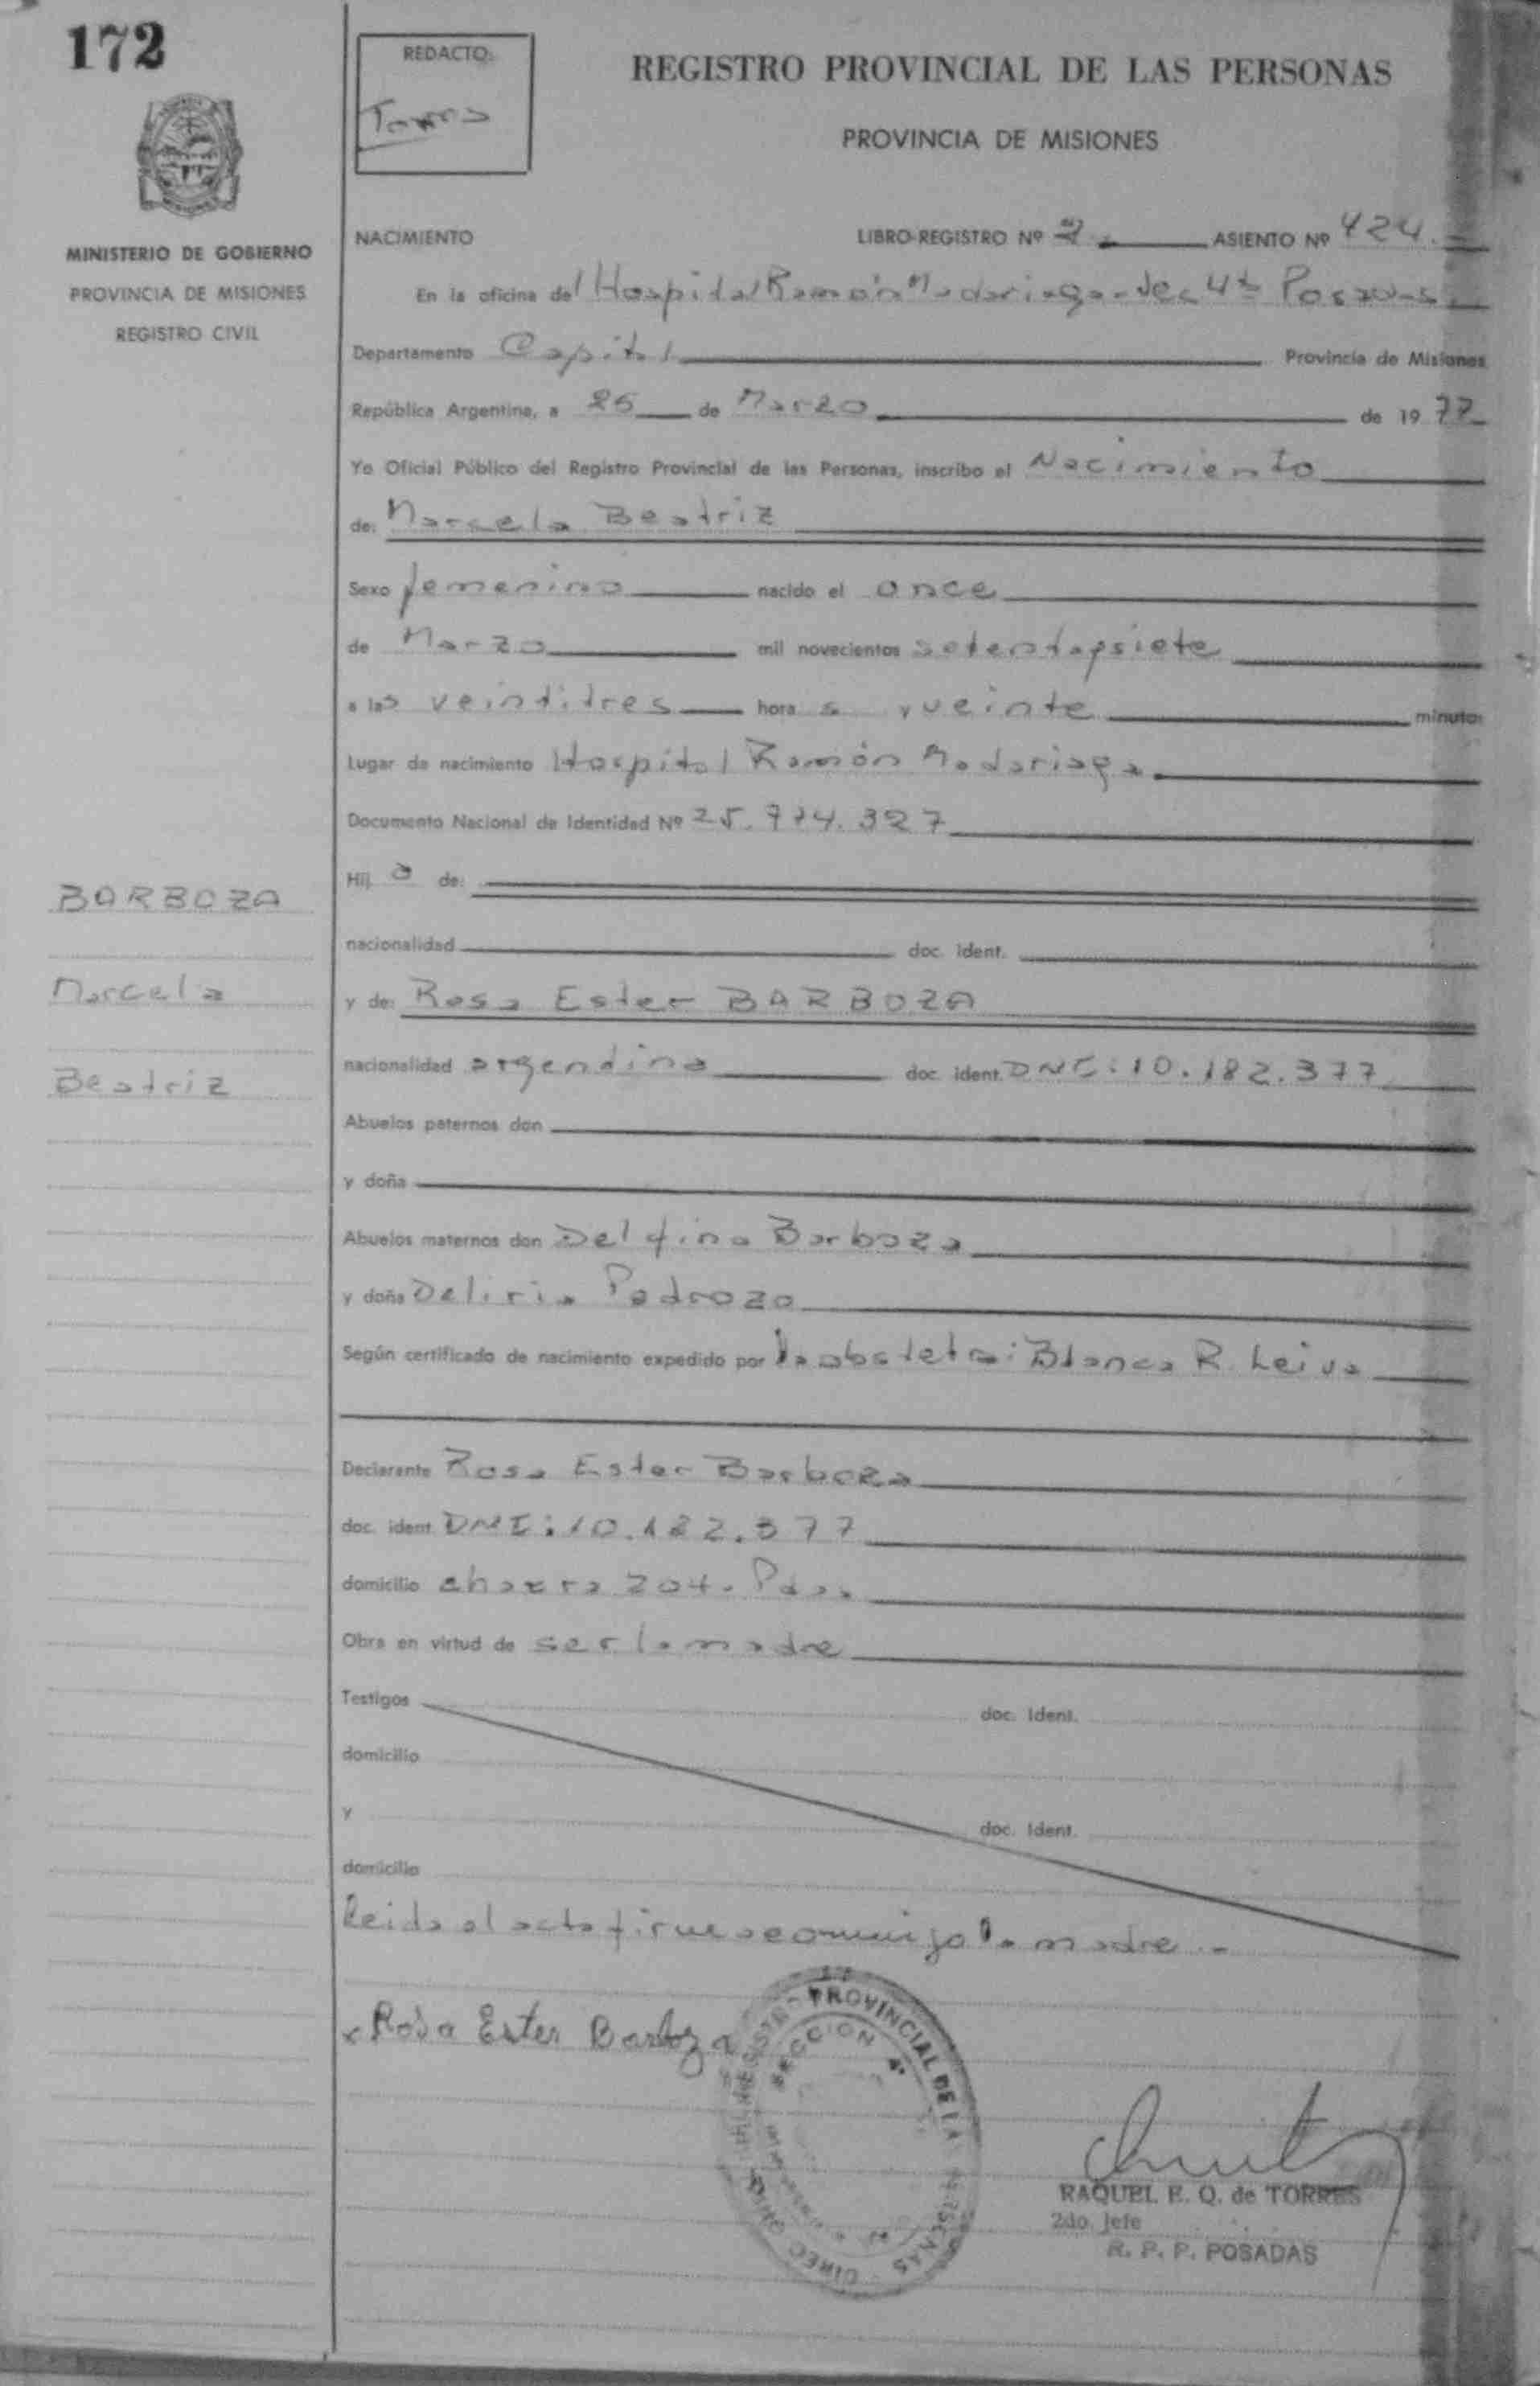 172
REDACTO:
Torres
REGISTRO PROVINCIAL DE LAS PERSONAS
PROVINCIA DE MISIONES
MINISTERIO DE GOBIERNO
PROVINCIA DE MISIONES
REGISTRO CIVIL
NACIMIENTO LIBRO-REGISTRO Nº 2. ASIENTO Nº 424.
En la oficina del Hospital Ramón Madariaga - Sec 4ta Posadas
Departamento Capital Provincia de Misiones
República Argentina, a 25 de Marzo de 1977
Yo Oficial Público del Registro Provincial de las Personas, inscribo el Nacimiento
de: Marcela Beatriz
Sexo femenino nacido el once
de Marzo mil novecientos setentaysiete
a las veintitres horas y veinte minutos
Lugar de nacimiento Hospital Ramón Madariaga
Documento Nacional de Identidad Nº 25.774.327
Hija de:
nacionalidad doc. ident.
y de: Rosa Ester BARBOZA
nacionalidad argentina doc. ident. DNI: 10.182.377
Abuelos paternos don
y doña
Abuelos maternos don Delfino Barboza
y doña Deliria Pedrozo
Según certificado de nacimiento expedido por la obstetra: Blanca R. Leiva
Declarante Rosa Ester Barboza
doc. ident. DNI: 10.182.377
domicilio chacra 204. Pdas.
Obra en virtud de ser la madre
Testigos doc. Ident.
domicilio
y doc. Ident.
domicilio
Leida el acta firma conmigo la madre.-
x Rosa Ester Barboza
BARBOZA
Marcela
Beatriz
PROVINCIAL DE LA
SECCION 4ª
RAQUEL E. Q. de TORRES
2do. Jefe
R. P. P. POSADAS